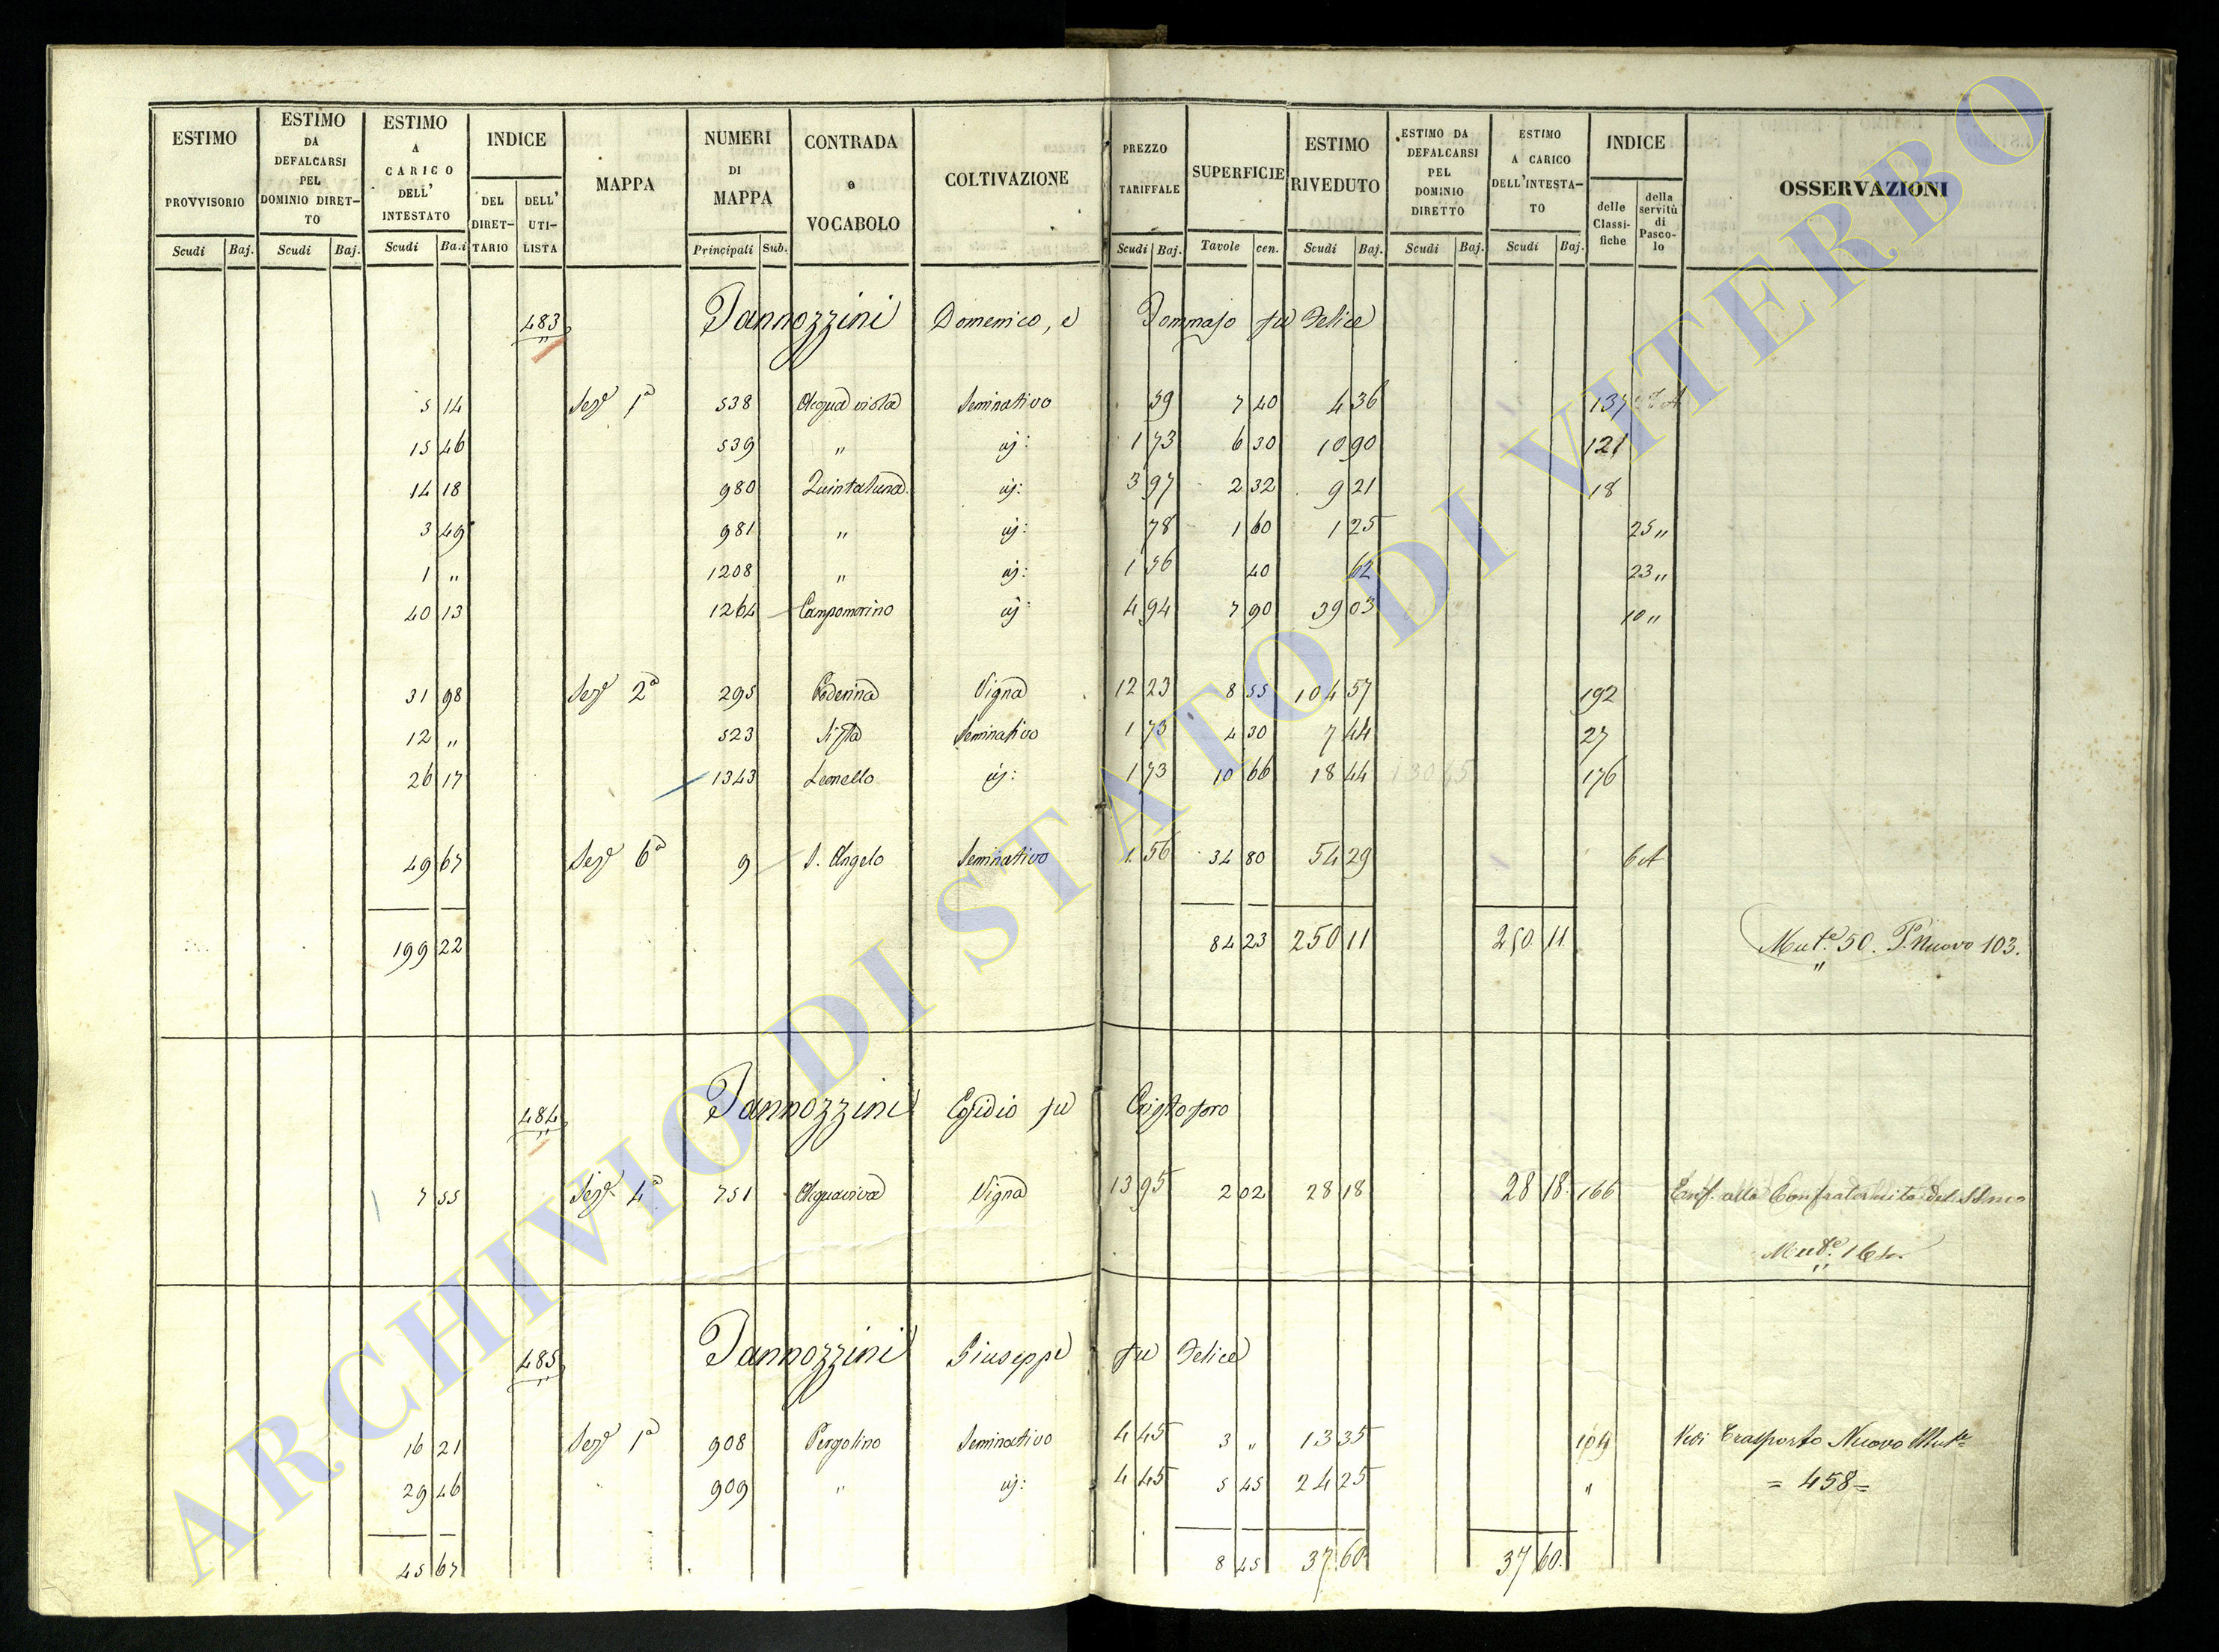 ESTIMO PROVVISORIO Scudi Baj.
ESTIMO DA DEFALCARSI PEL DOMINIO DIRET-TO Scudi Baj.
ESTIMO A CARICO DELL' INTESTATO Scudi Ba.i
INDICE DEL DIRET-TARIO DELL' UTI-LISTA
MAPPA
NUMERI DI MAPPA Principali Sub.
CONTRADA e VOCABOLO
COLTIVAZIONE
PREZZO TARIFFALE Scudi Baj.
SUPERFICIE Tavole cen.
ESTIMO RIVEDUTO Scudi Baj.
ESTIMO DA DEFALCARSI PEL DOMINIO DIRETTO Scudi Baj.
ESTIMO A CARICO DELL'INTESTA-TO Scudi Baj.
INDICE delle Classi-fiche della servitù di Pasco-lo
OSSERVAZIONI
483 Iannozzini Domenico, e Tommaso fu Felice
5 14 Sez.e 1a 538 Seminativo 59 7 40 4 36 137
15 46 539 " id: 1 73 6 30 10 90 121
14 18 980 Quintaluna id: 3 97 2 32 9 21 18
3 49 981 " id: 78 1 60 1 25 25 "
1 " 1208 " id: 1 56 40 62 23 "
40 13 1264 Campomorino id: 4 94 7 90 39 03 10 "
31 98 Sez.e 2a 295 Poderina Vigna 12 23 8 55 104 57 192
12 " 523 Seminativo 1 73 4 30 7 44 27
26 17 1343 Leonello id: 1 73 10 66 18 44 130 45 176
49 67 Sez.e 6a 9 S. Angelo Seminativo 1 56 34 80 54 29 6 A
199 22 84 23 250 11 250 11 Mut.e 50. P. Nuovo 103.
484 Iannozzini Egidio fu Cristoforo
7 55 Sez.e 4a 751 Acquaviva Vigna 13 95 2 02 28 18 28 18 166 Enf. alla Confraternita del SSmo
Mut.e
485 Iannozzini Giuseppe fu Felice
16 21 Sez.e 1a 908 Pergolino Seminativo 4 45 3 " 13 35 104 Vedi Trasporto Nuovo Mut.e
29 46 909 " id: 4 45 5 45 24 25 " = 458 =
45 67 8 45 37 60 37 60
ARCHIVIO DI STATO DI VITERBO